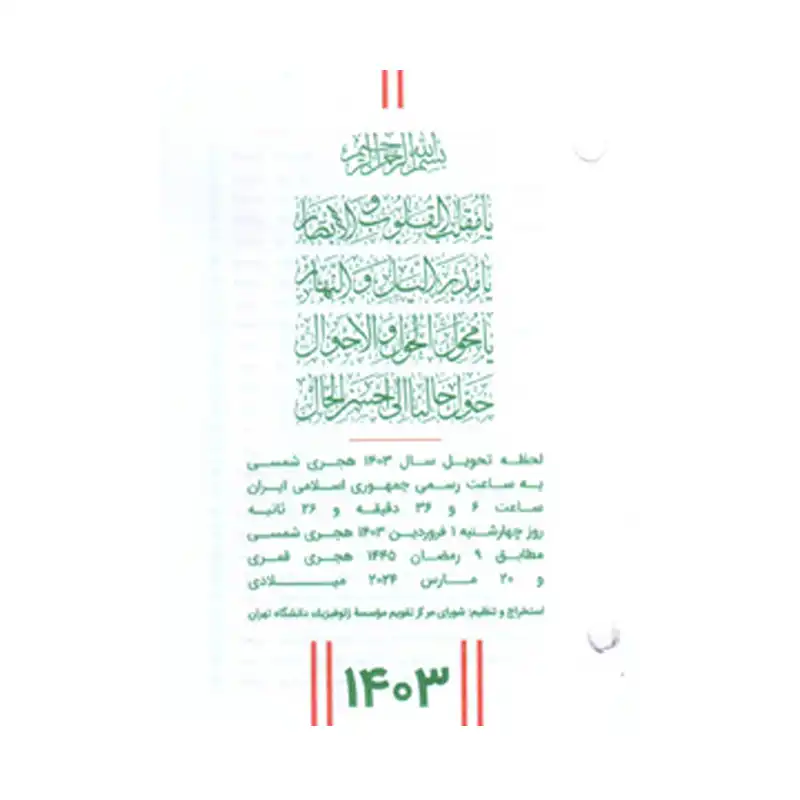 بسم الله الرحمن الرحیم
یا مقلب القلوب و الابصار
یا مدبر اللیل و النهار
یا محول الحول و الاحوال
حول حالنا الی احسن الحال
لحظه تحویل سال ۱۴۰۳ هجری شمسی
به ساعت رسمی جمهوری اسلامی ایران
ساعت ۶ و ۳۶ دقیقه و ۲۶ ثانیه
روز چهارشنبه ۱ فروردین ۱۴۰۳ هجری شمسی
مطابق ۹ رمضان ۱۴۴۵ هجری قمری
و ۲۰ مارس ۲۰۲۴ میلادی
استخراج و تنظیم: شورای مرکز تقویم مؤسسهٔ ژئوفیزیک دانشگاه تهران
۱۴۰۳